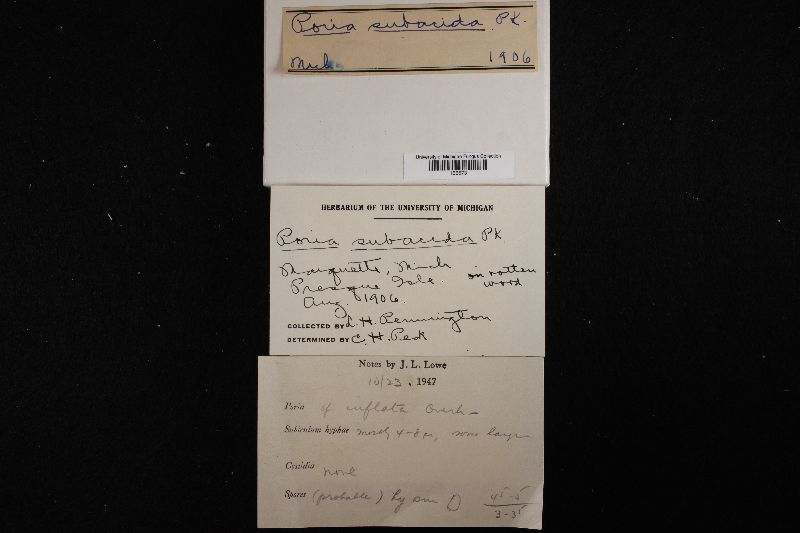 Poria subacida PK.
Mich 1906
University of Michigan Fungus Collection
HERBARIUM OF THE UNIVERSITY OF MICHIGAN
Poria subacida PK.
Marquette, Mich
Presque Isle. on rotten wood
Aug. 1906.
COLLECTED BY L. H. Pennington
DETERMINED BY C. H. Peck
Notes by J. L. Lowe
10/23, 1947
Poria cf inflata Overh-
Subiculum hyphae mostly 4-8 µ, some larger
Cystidia none
Spores (probable) hy 4⁵-5
3-3⁵